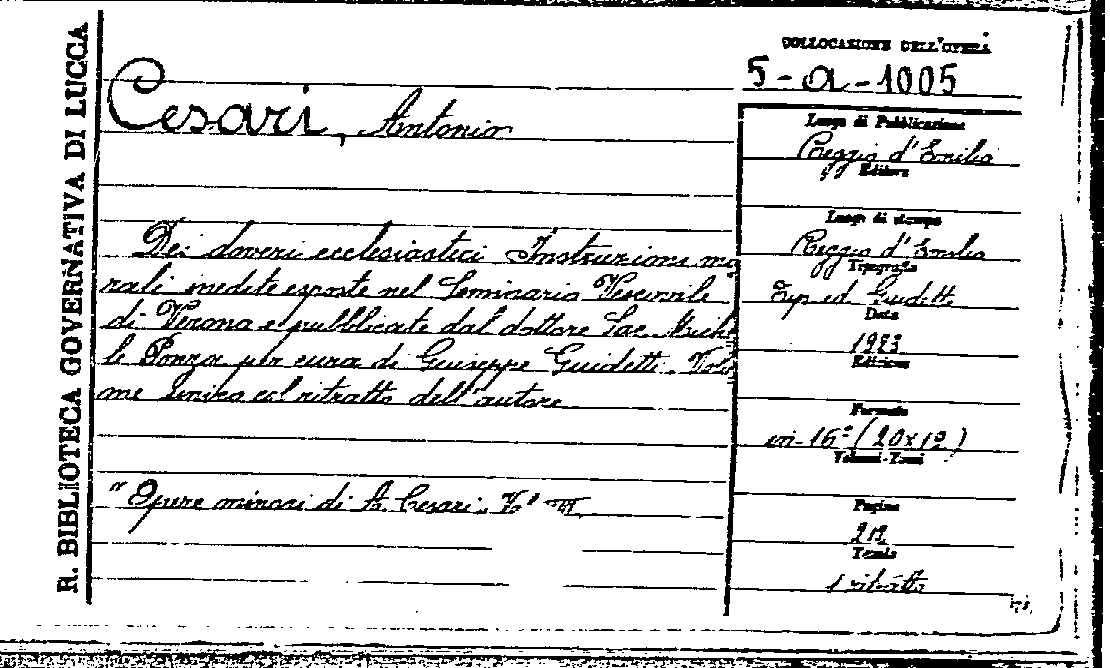 R. BIBLIOTECA GOVERNATIVA DI LUCCA
COLLOCAZIONE DELL'OPERA
5-a-1005
Cesari, Antonio
Dei doveri ecclesiastici Instruzione mo
rali inedite esposte nel Seminario Vescovile
di Verona e pubblicate dal dottore Sac. Miche
le Ponza per cura di Giuseppe Guidetti. Volu
me Unico col ritratto dell'autore
"Opere minori di A. Cesari. Vol
Luogo di Pubblicazione
Reggio d'Emilia
Editore
Luogo di stampa
Reggio d'Emilia
Tipografia
Tip. ed. Guidetti
Data
Edizione
Formato
in-16º (20x12)
Volumi-Tomi
Pagine
Tavole
1 ritratto